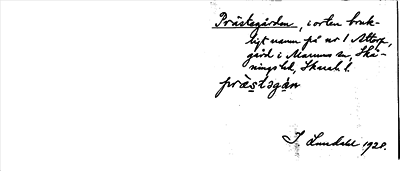 Prästegården, i orten bruk-
ligt namn på nr 1 Attorp,
gård i Marums sn, Skå-
nings hd, Skarab. l.
præstəgån
I. Lundahl 1928.